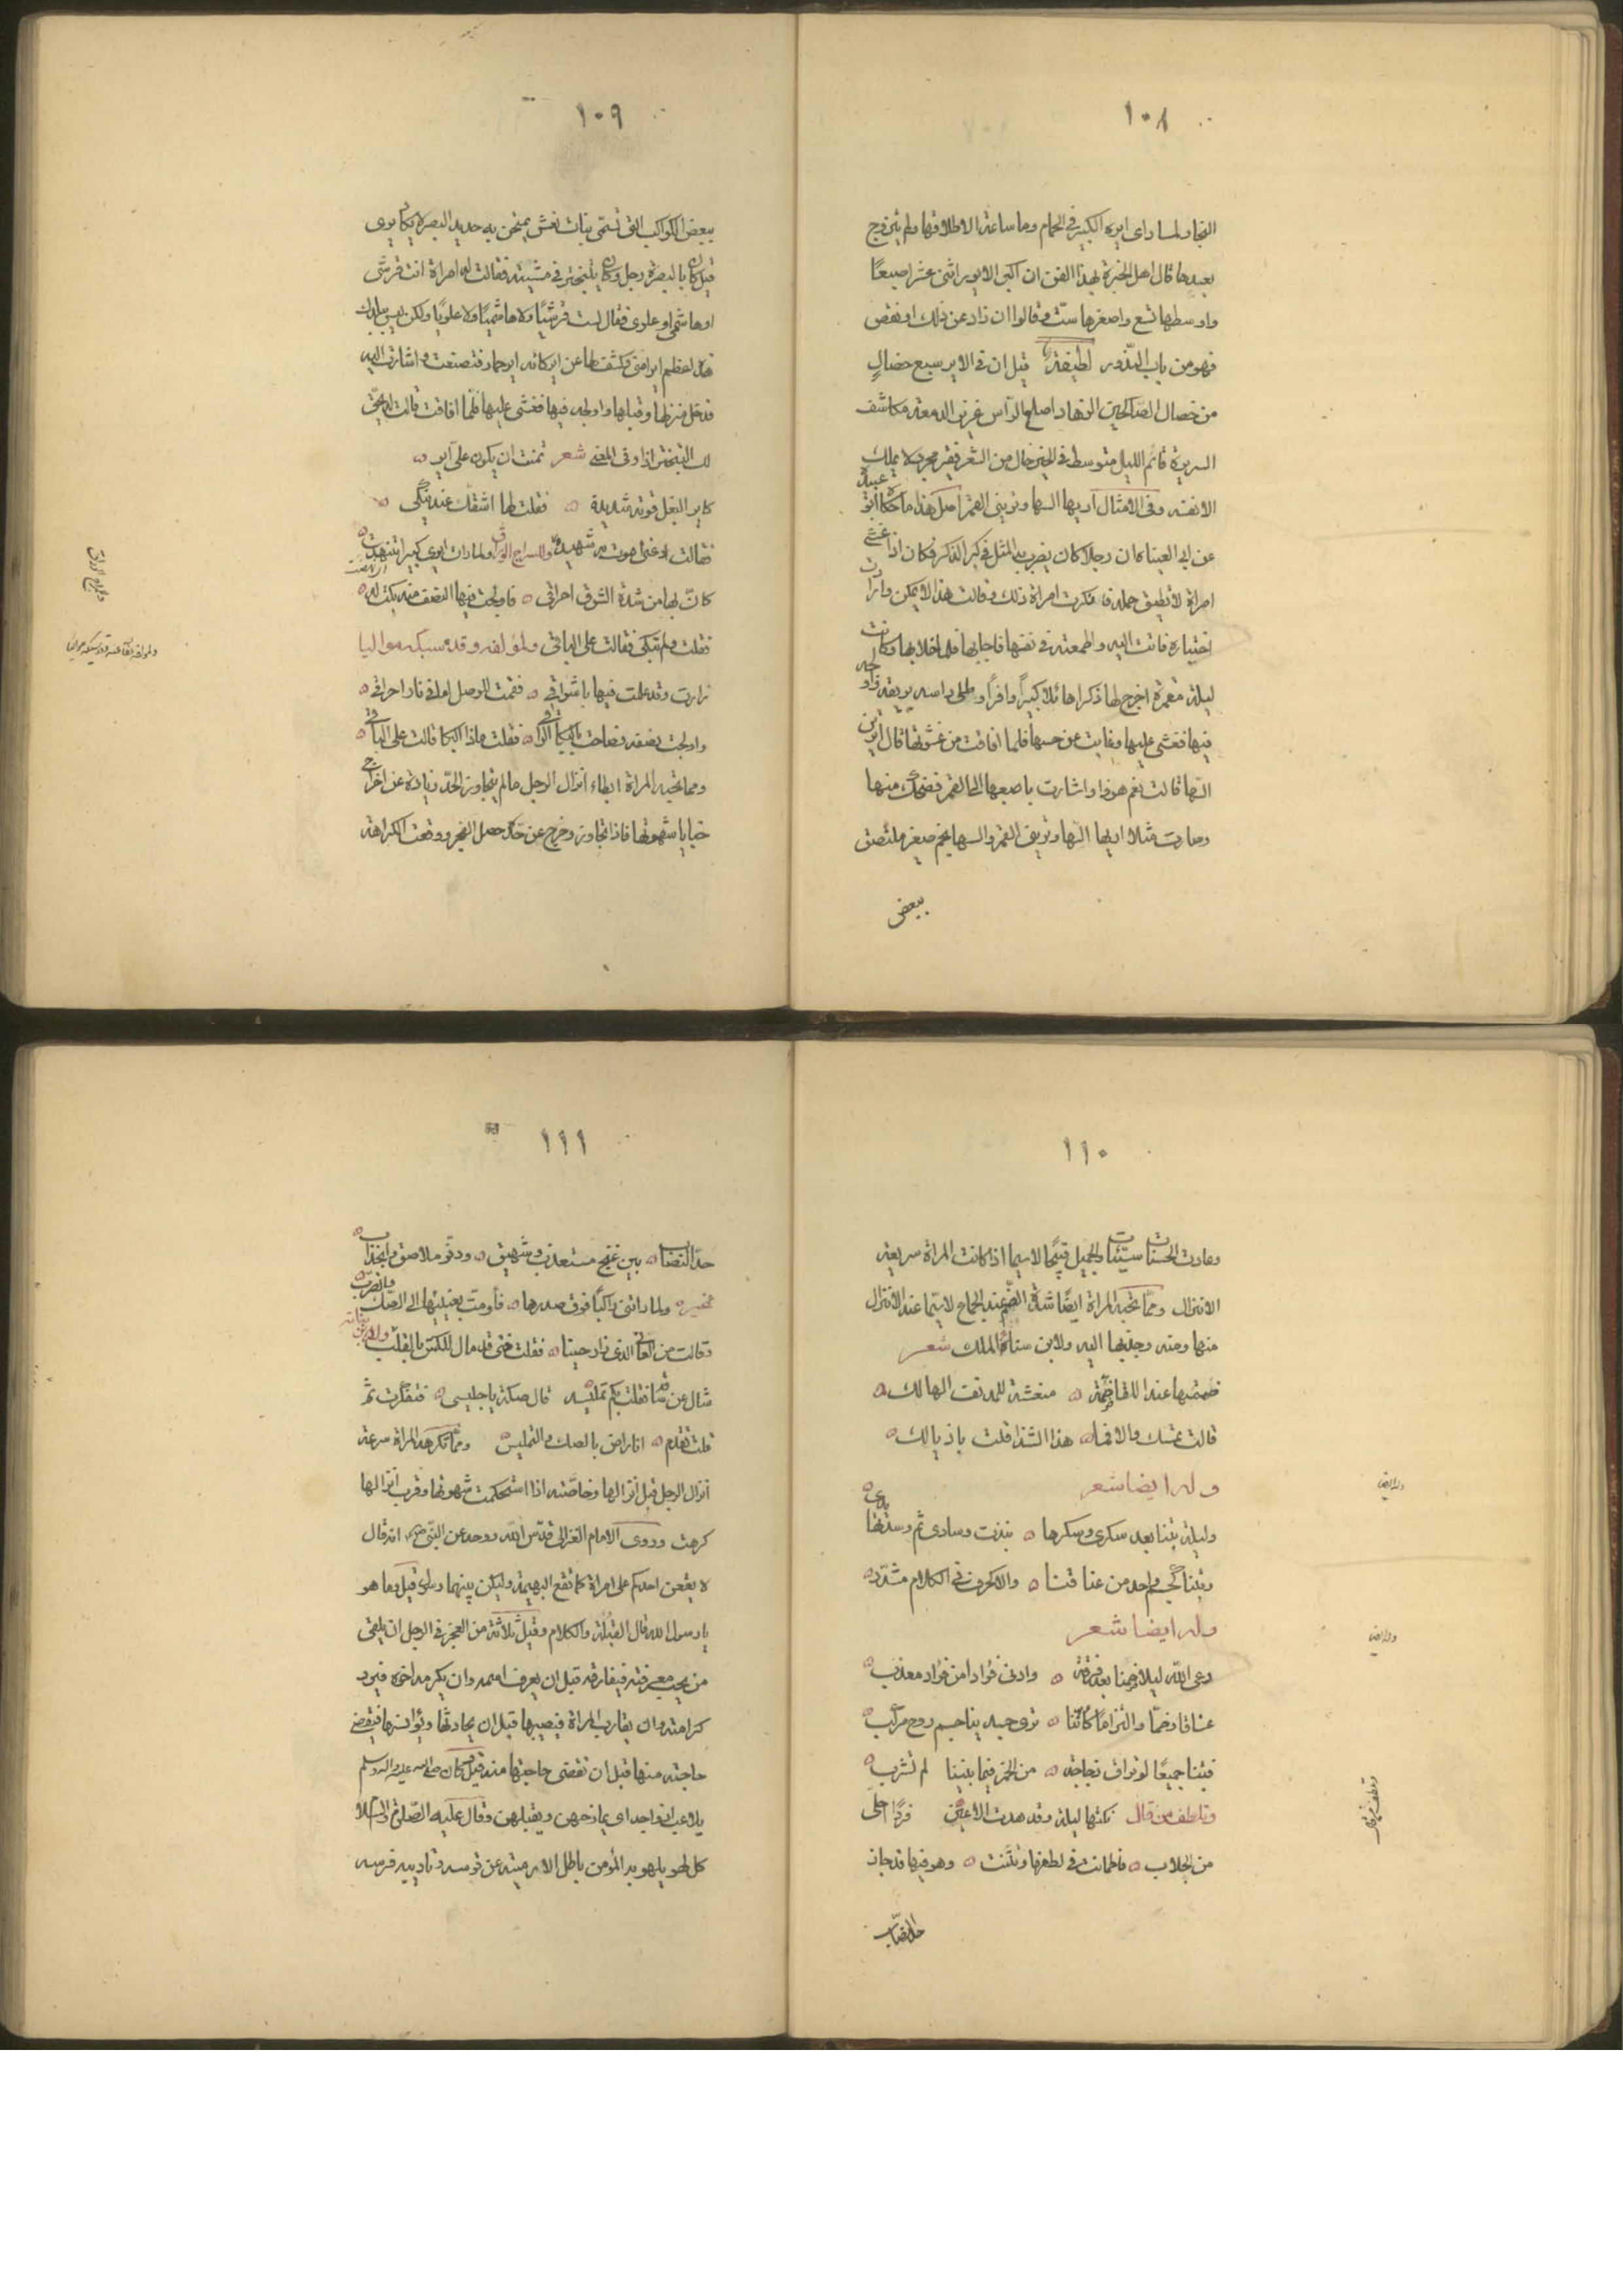 ١٠٨
النجار لما راى ايره الكبير في الحمام وما ساعة الا طلاقها ولم يتزوج
بعدها قال اهل الخبرة بهذا الفن ان اكبر الايور اثنى عشر اصبعًا
واوسطها تسع واصغرها ستّ وقالوا ان زاد عن ذلك او نقص
فهو من باب النّدور لطيفة قيل ان في الاير سبع خصالٍ
من خصال الصّالحين الزهاد اصلع الرأس غزير الدمعة مكاشف
السريرة قائم الليل متوسط في الخير خال من الشعر فقير مجرد لا يملك
الا نفسه وفى الامثال اريها السها وتريني القمر اصل هذا ما حكاه ابو عبيدة
عن ابي العينا كان رجلا كان يضرب به المثل في كبر الذكر فكان اذا غشى
امراة لا تطيق حمله فانكرت امراة ذلك وقالت هذا لا يمكن وارادت
اختياره فاتت اليه واطمعته في نفسها فاجابها فلما خلا بها وكانت
ليلة مقمرة اخرج لها ذكرا هائلا كبيرًا وافرًا وطلى راسه بريقه واولجه
فيها فغشى عليها وغابت عن حسها فلما افاقت من غشوتها قال اترين
السّها قالت نعم هو ذا واشارت باصبعها الى القمر فضحك منها
وصارت مثلا اريها السّها وتريني القمر والسها نجم صغير ملتصق
ببعض
١٠٩
ببعض الكواكب التي تسمّى بنات نعش يمتحن به حديد البصر لا يكاد يرى
قيل كان بالبصرة رجل وكان يتبختر في مشيته فقالت له امراة انت قرشى
او هاشمى او علوى فقال لست قرشيًا ولا هاشميًا ولا علويًا ولكن
عظيم اير امتى وكشف لها عن اير كانه اير حمار فتصنعت واشارت اليه
فدخل منزلها وقبلها واولجه فيها فغشى عليها فلما افاقت قالت
لك التبختر اذا وفى المعنى شعر تمنت ان يكون على اير ه
كاير البغل قوته شديدة ه فقلت لها اشقك عند نيكى ه
فقالت دعنى اموت شهيدة وللسراج الوراق ولما رات ايرى كبيرا تنهدت
كانّ بها من شدة الشوق احراق ه فاولجت فيها النصف منه بكت له
فقلت ولم تبكى فقالت على الباقى ولمؤلفه وقد سبكه مواليا
زارت وقد علمت فيها باشواقى ه فقمت للوصل اطفى نار احراقى ه
واولجت نصفه فصاحت بالبكا الراقى ه فقلت ماذا البكا قالت على الباقى ه
ومما تحبه المراة ابطاء انزال الرجل ما لم يتجاوز الحدّ زيادة عن اخراج
خبايا شهوتها فاذا تجاوز وخرج عن حدّه حصل الضجر ووقعت الكراهة
وللسراج الوراق
١١٠
وعادت الحسنات سيّئات والجميل قبيحًا لا سيما اذا كانت المراة سريعة
الانزال وممّا تحبه المراة ايضًا شدّة الضّم عند الجماع لا سيّما عند الانزال
منها ومنه وجذبها اليه ولابن سناء الملك شعر
ضممتها عند اللقا ضمّة ه منعشة للمدنف الهالك ه
قالت تمسّك والا فما ه هذا الشذا قلت باذيالك ه
وله ايضا شعر
وليلة بتنا بعد سكرى وسكرها ه نبذت وسادى ثم وسدتها يدى ه
وبتنا كجسم واحد من عناقنا ه والا كحرف في الكلام مشدّد ه
وله ايضا شعر
رعى الله ليلا ضمنا بعد فرقة ه وادنى فؤادا من فؤاد معذب ه
عناقا وضمّا والتزامًا كاننا ه نرى جسدينا جسم روح مركب ه
فبتنا جميعًا لو تراق زجاجة ه من الخمر فيما بيننا لم تشرب ه
وتلطف من قال نكتها ليلة وقد هدت الاعين فردًا احلى
من الجلاب ه فاطمانت في لطفها وتثنت ه وهو فيها قد جاز
وله ايضا
وله ايضا
وتلطف من قال
حدّ النصاب
١١١
حدّ النصاب ه بين غنج مستعذب وشهيق ه ودقّ ملاصق وانجذاب ه
غيره ولما راتنى راكبًا فوق صدرها ه فأومت بعينيها الى الصك والضرب ه
وقالت من العانى الذى زاد حينا ه فقلت فتى قد مال للكسّ بالقلب ه
سال عن سعر ساقنا قلت بكم تمليسه قال صكة يا جليسى ه فتفكرت ثم
قلت تقدم ه انا راض بالصك والتمليس ه وممّا تكره المراة سرعة
انزال الرجل قبل انزالها وخاصّته اذا استحكمت شهوتها وقرب انزالها
كرهت وروى الامام الغزالى قدّس الله روحه عن النبى صلعم انه قال
لا يقعن احدكم على امراة كما تقع البهيمة وليكن بينهما رسول قيل وما هو
يا رسول الله قال القبلة والكلام وقيل ثلاثة من العجز في الرجل ان يلقى
من يحب معرفته فيفارقه قبل ان يعرف اسمه وان يكرمه اخوه فيرد
كرامته وان يقارب المراة فيصيبها قبل ان يحادثها ويؤانسها فيقضى
حاجته منها قبل ان تقضى حاجتها منه قيل كان صلى الله عليه واله وسلم
يلاعب ازواجه اى يمازحهن ويقبلهن وقال عليه الصّلاة والسّلام
كل لهو يلهو به المؤمن باطل الا رميته عن قوسه وتاديبه فرسه